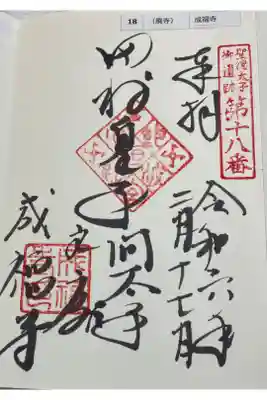 18 (廃寺) 成福寺
聖徳太子
御遺跡
第十八番
奉拝
令和六年
二月十七日
田村皇子
問太子
成福寺